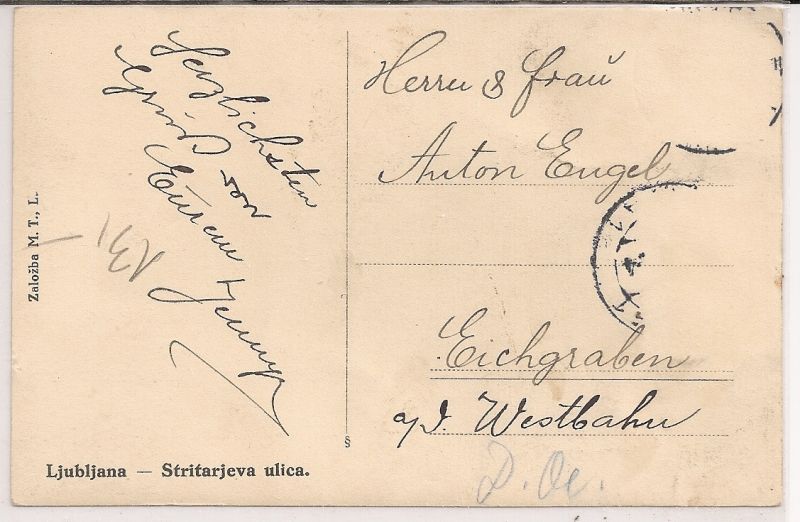 Herzlichsten
Gruß
von
Eurem
Herrn & Frau
Anton Engel
Eichgraben
a/d. Westbahn
D. Oe.
131
Založba M. T., L.
Ljubljana — Stritarjeva ulica.
§